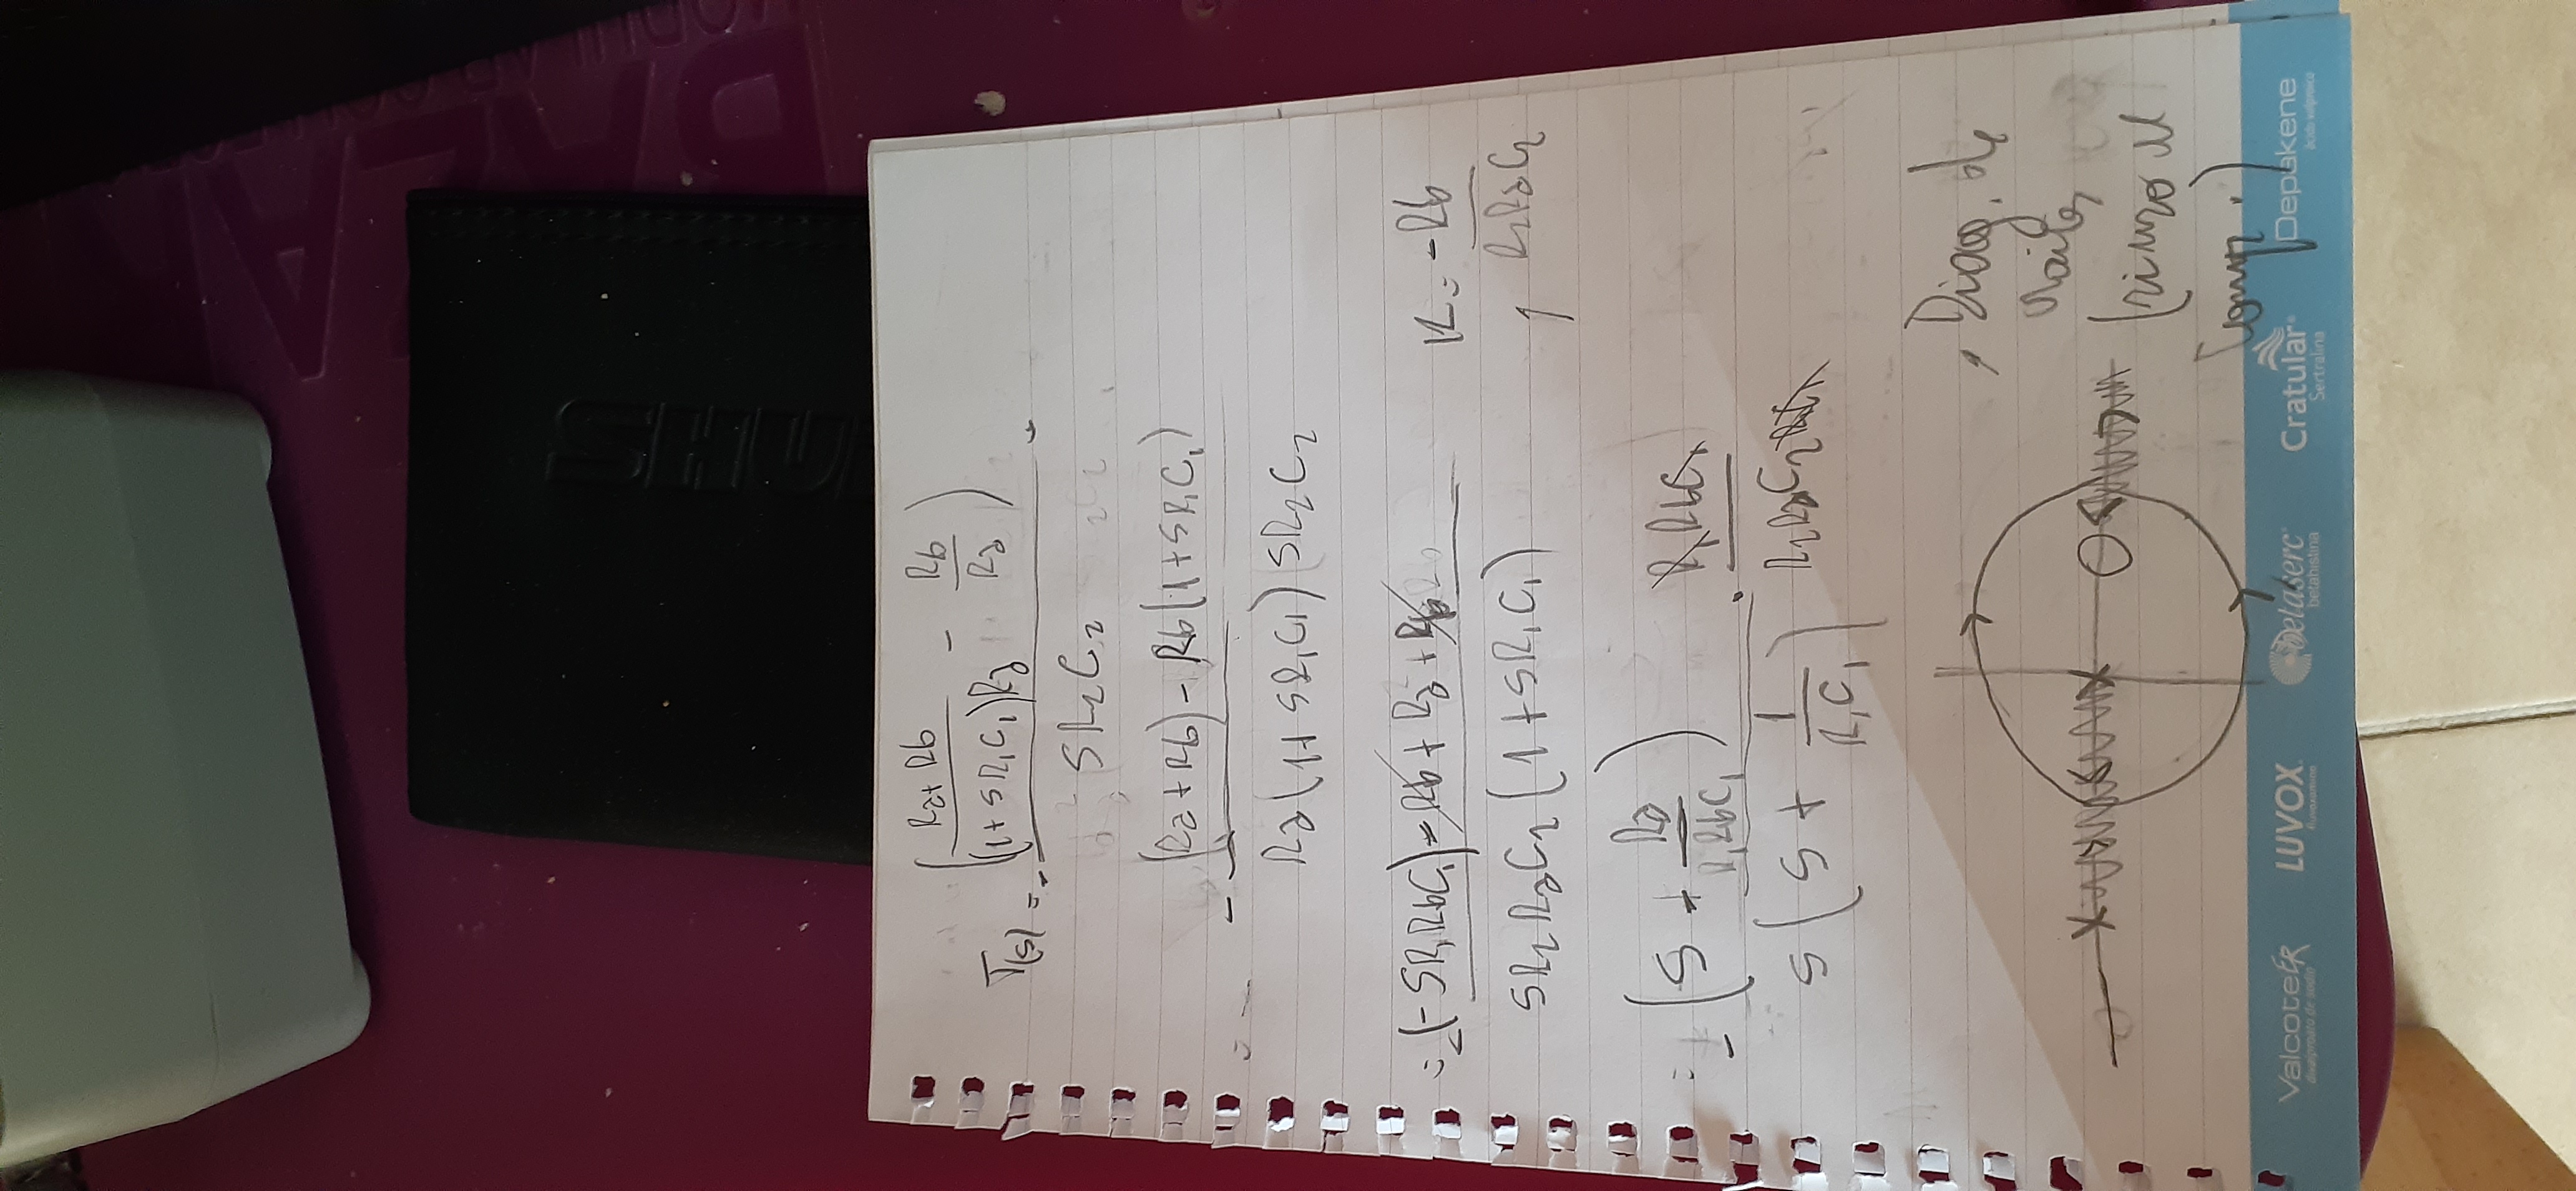 T(s) = - ((Ra + Rb) / ((1 + SR₁C₁)Ra) - Rb / Ra) / SR₂C₂ -
= - - ((Ra + Rb) - Rb(1 + SR₁C₁)) / (Ra(1 + SR₁C₁) SR₂C₂)
= - ((-SR₁RbC₁) - Rb + Ra + Rb) / (SR₂RaC₂(1 + SR₁C₁))
K = -Rb / R₂RaC₂
= - (S + Ra / R₁RbC₁) / (S(S + 1 / R₁C₁)) . R₁RbC₁ / R₂RaC₂R₁C₁
Diag. de
(
)
ValcoteER
divalproato de sodio
LUVOX
fluvoxamina
betaserc
betahistina
Cratular
Sertralina
Depakene
ácido valproico